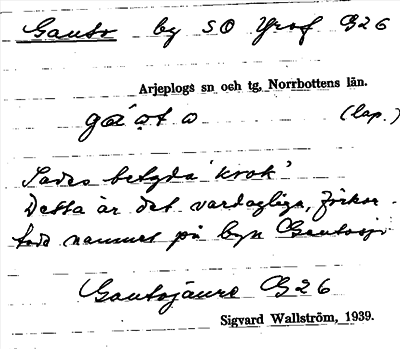 Gauto by SO Graf B26
Arjeplogs sn och tg, Norrbottens län.
gɑ́ọtо (lap.)
Sades betyda 'krok'
Detta är det vardagliga, förkor-
tade namnet på byn Gautosjö
Gautojaure B26
Sigvard Wallström, 1939.